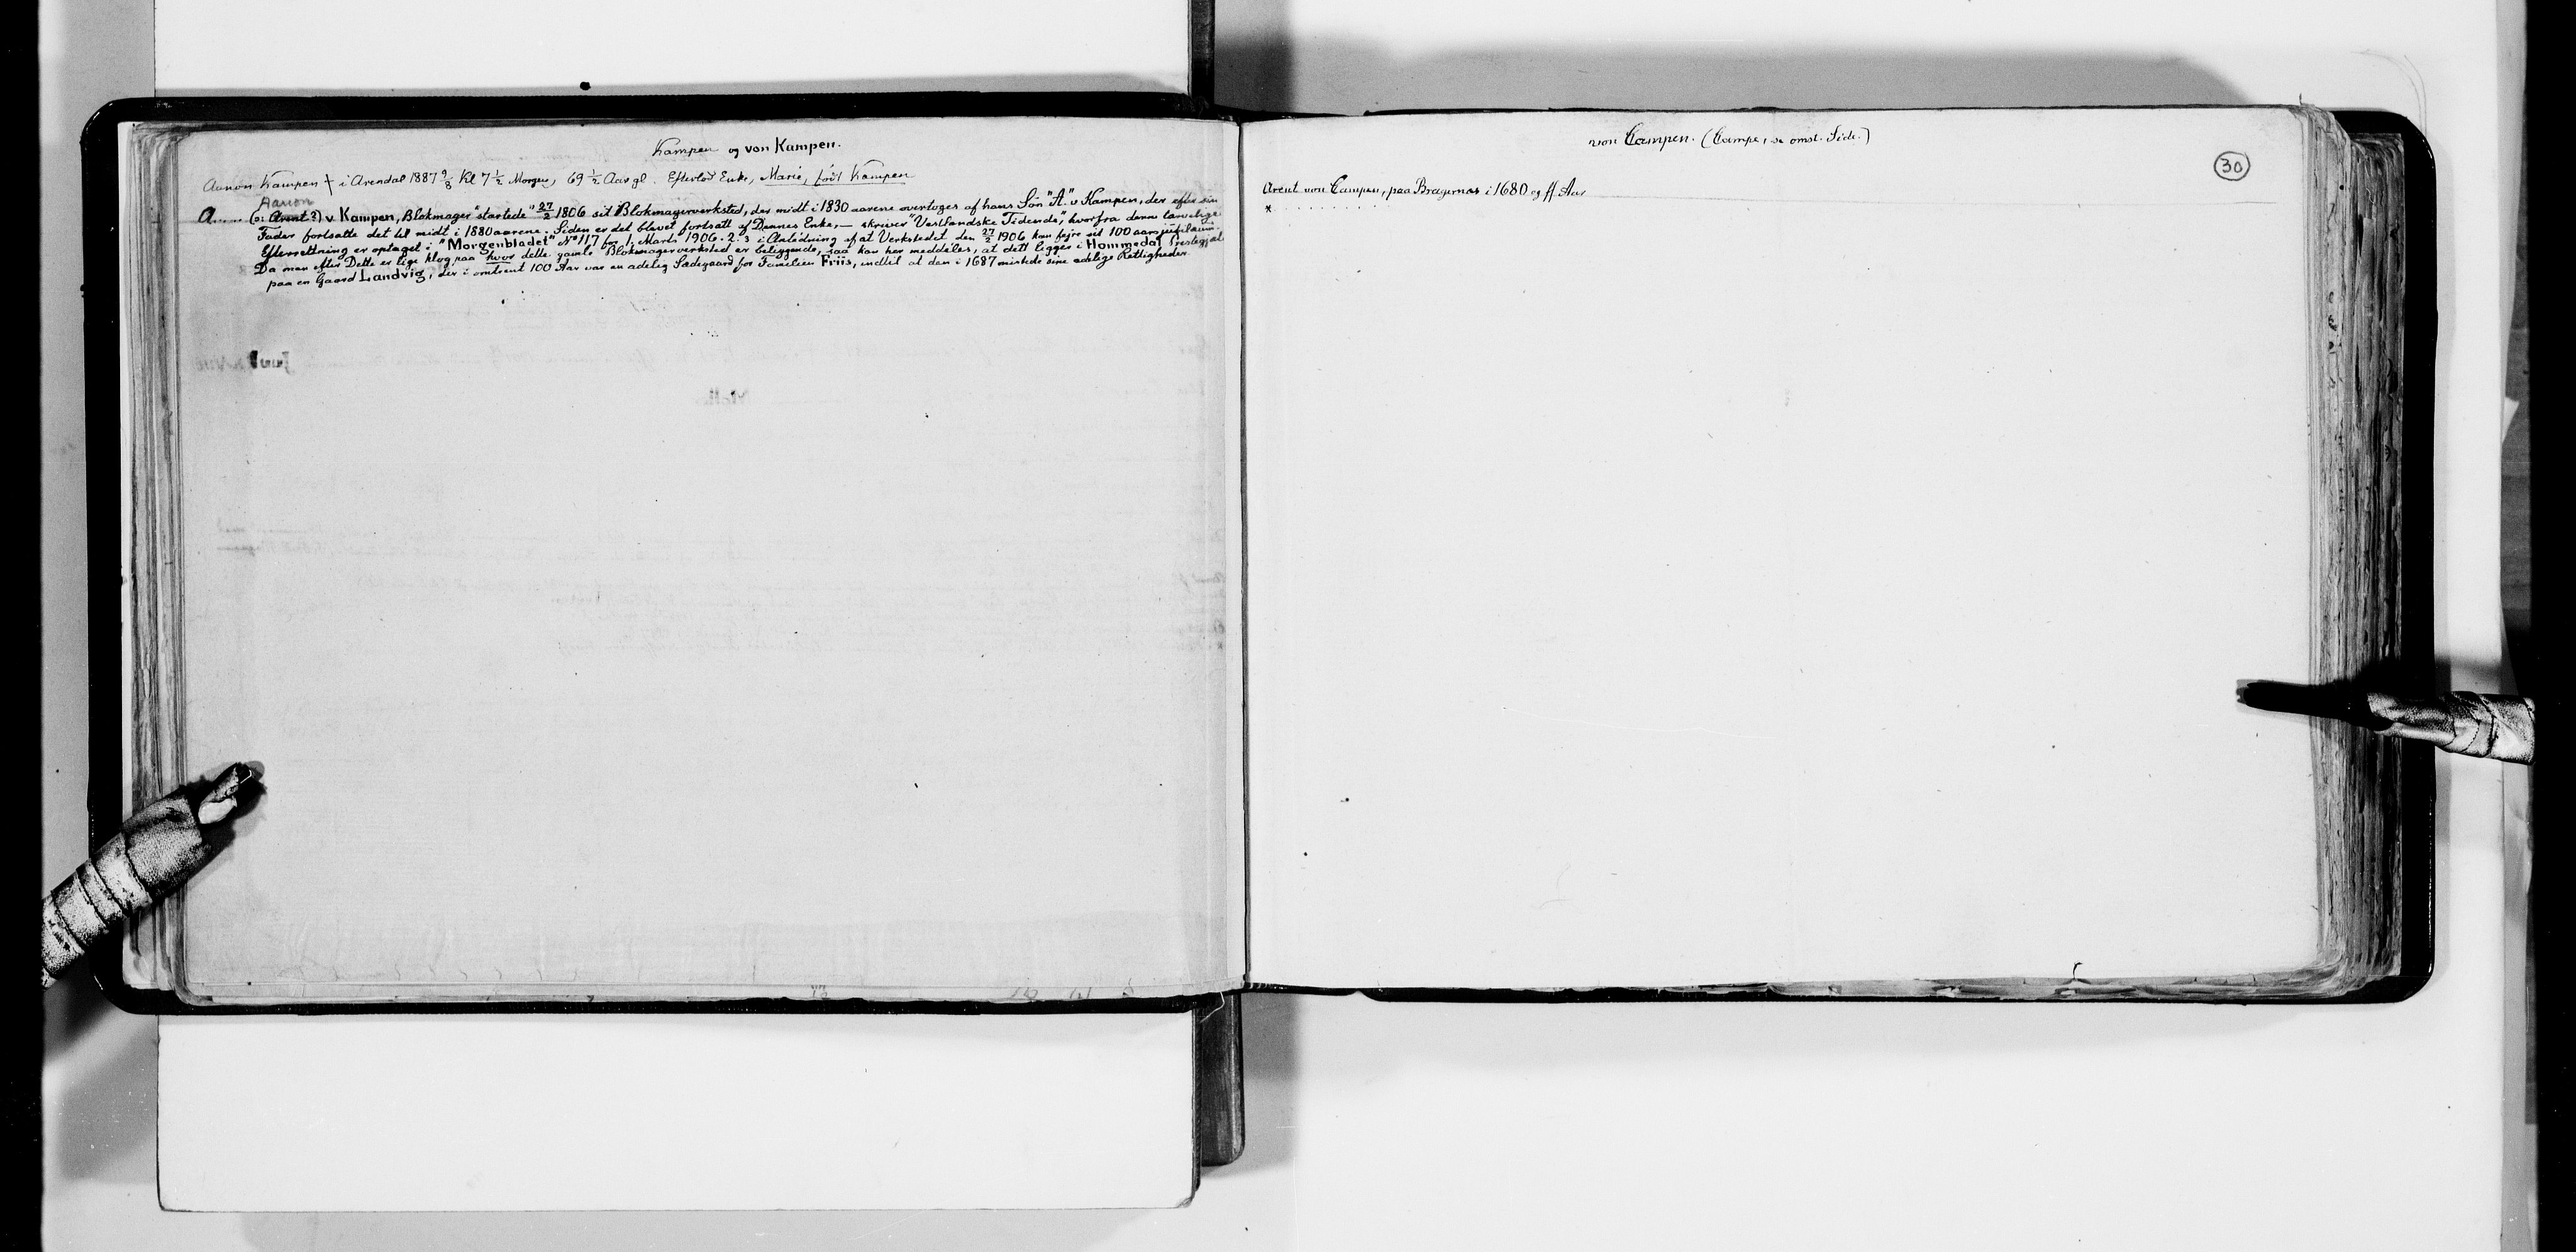 Kampen og von Kampen.
Aanon Kampen † i Arendal 1887 9/8 Kl 7 1/2 Morgen, 69 1/2 Aar gl. Efterlod Enke, Marie, født Kampen
Aanon
A (o: Arent?) v. Kampen, Blokmager "startede" 27/2 1806 sit Blokmagerverksted, der midt i 1830 aarene overtoges af hans Søn "A." v. Kampen, der efter sin
Fader fortsatte det til midt i 1880 aarene. Siden er det blevet fortsatt af Dennes Enke, — skriver "Vestlandske Tidende," hvorfra denne
Efterretning er optaget i "Morgenbladet" No 117 for 1. Marts 1906. 2. 3 i Anledning af at Verkstedet den 27/2 1906 kan fejre sit 100 aars jubilæum.
Da man efter Dette er lige klog paa hvor dette gamle Blokmagerverksted er beliggende, saa kan her meddeles, at dett ligger i Hommedal Prestegjæld
paa en Gaard Landvig, der i omtrent 100 Aar var en adelig Sædegaard for Familien Friis, indtil at den i 1687 mistede sine adelige Rettigheder.
von Campen. (Campe, se omst. Side.)
30
Arent von Campen, paa Bragernæs i 1680 og ff. Aar
* . . . . . . . . . .